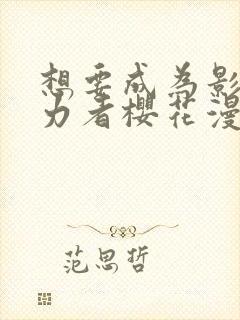 想要成为影
力者樱花漫
范思哲